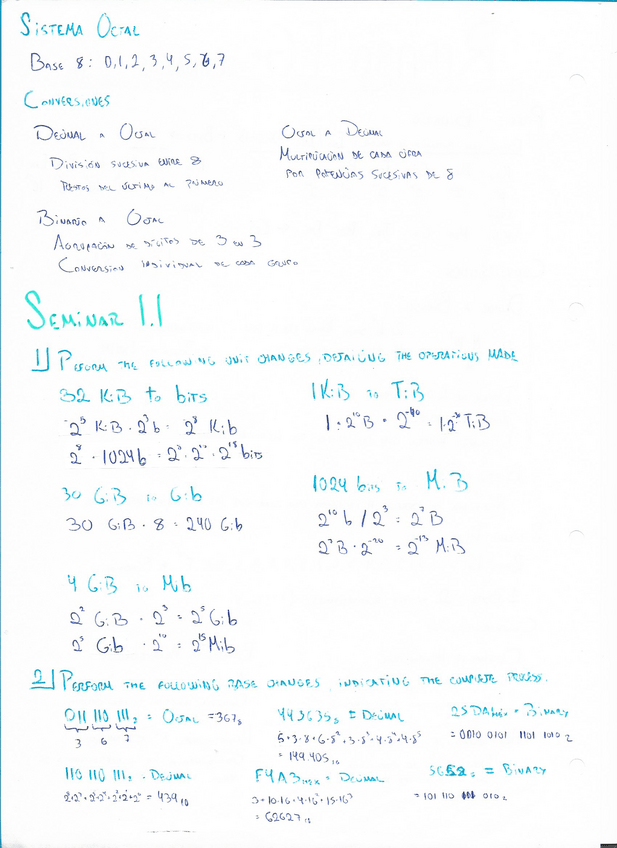 Sistema Octal
Base 8: 0,1,2,3,4,5,6,7
Conversiones
Decimal a Octal
División sucesiva entre 8
Restos del último al primero
Octal a Decimal
Multiplicación de cada cifra
por potencias sucesivas de 8
Binario a Octal
Agrupación de dígitos de 3 en 3
Conversion individual de cada grupo
Seminar 1.1
1) Perform the following unit changes, detailing the operations made
32 KiB to bits
2^5 KiB · 2^3 b = 2^8 Kib
2^8 · 1024 b = 2^8 · 2^10 = 2^18 bits
1 KiB to TiB
1 · 2^10 B · 2^-40 = 1·2^-30 TiB
30 GiB to Gib
30 GiB · 8 = 240 Gib
1024 bits to MiB
2^10 b / 2^3 = 2^7 B
2^7 B · 2^-20 = 2^-13 MiB
4 GiB to Mib
2^2 GiB · 2^3 = 2^5 Gib
2^5 Gib · 2^10 = 2^15 Mib
2) Perform the following base changes, indicating the complete process.
011 110 111₂ = Octal = 367₈
3 6 7
443635₈ = Decimal
5+3·8+6·8^2+3·8^3+4·8^4+4·8^5
= 149.405₁₀
25DA hex = Binary
= 0010 0101 1101 1010₂
110 110 111₂ = Decimal
= 439₁₀
F4A3 hex = Decimal
3+10·16+4·16^2+15·16^3
= 62627₁₀
= Binary
= 101 110 010₂